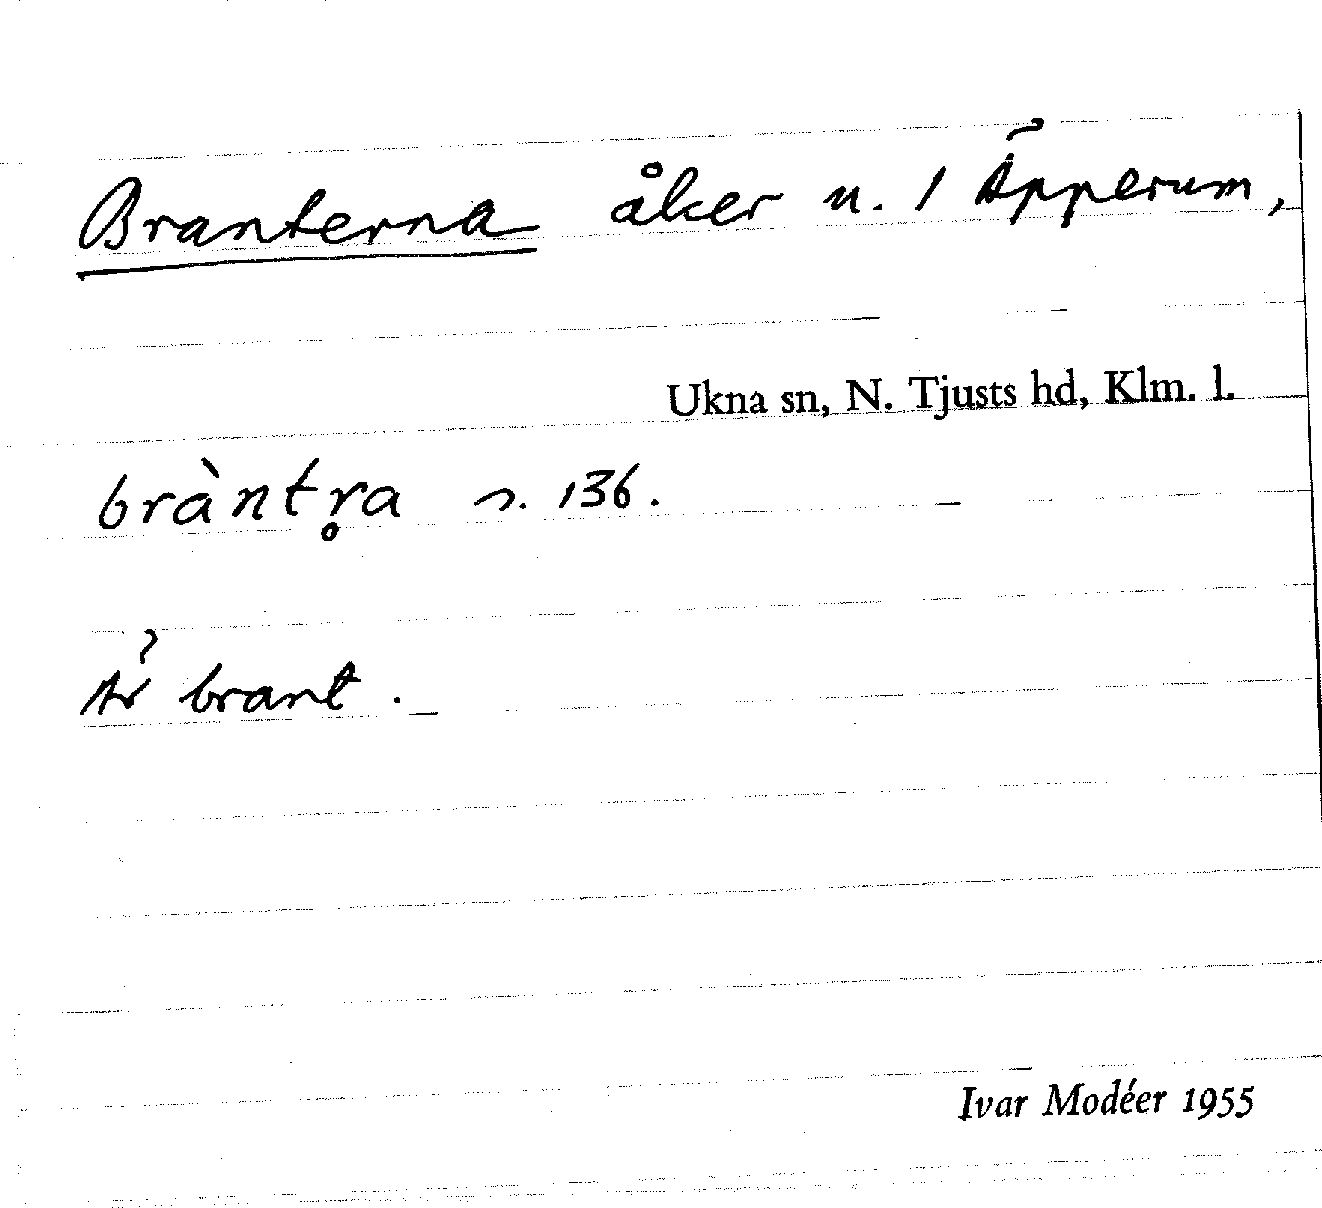 Branterna åker n. 1 Äpperum,
Ukna sn, N. Tjusts hd, Klm. l.
bràntr̥a s. 136.
Är brant.
Ivar Modéer 1955